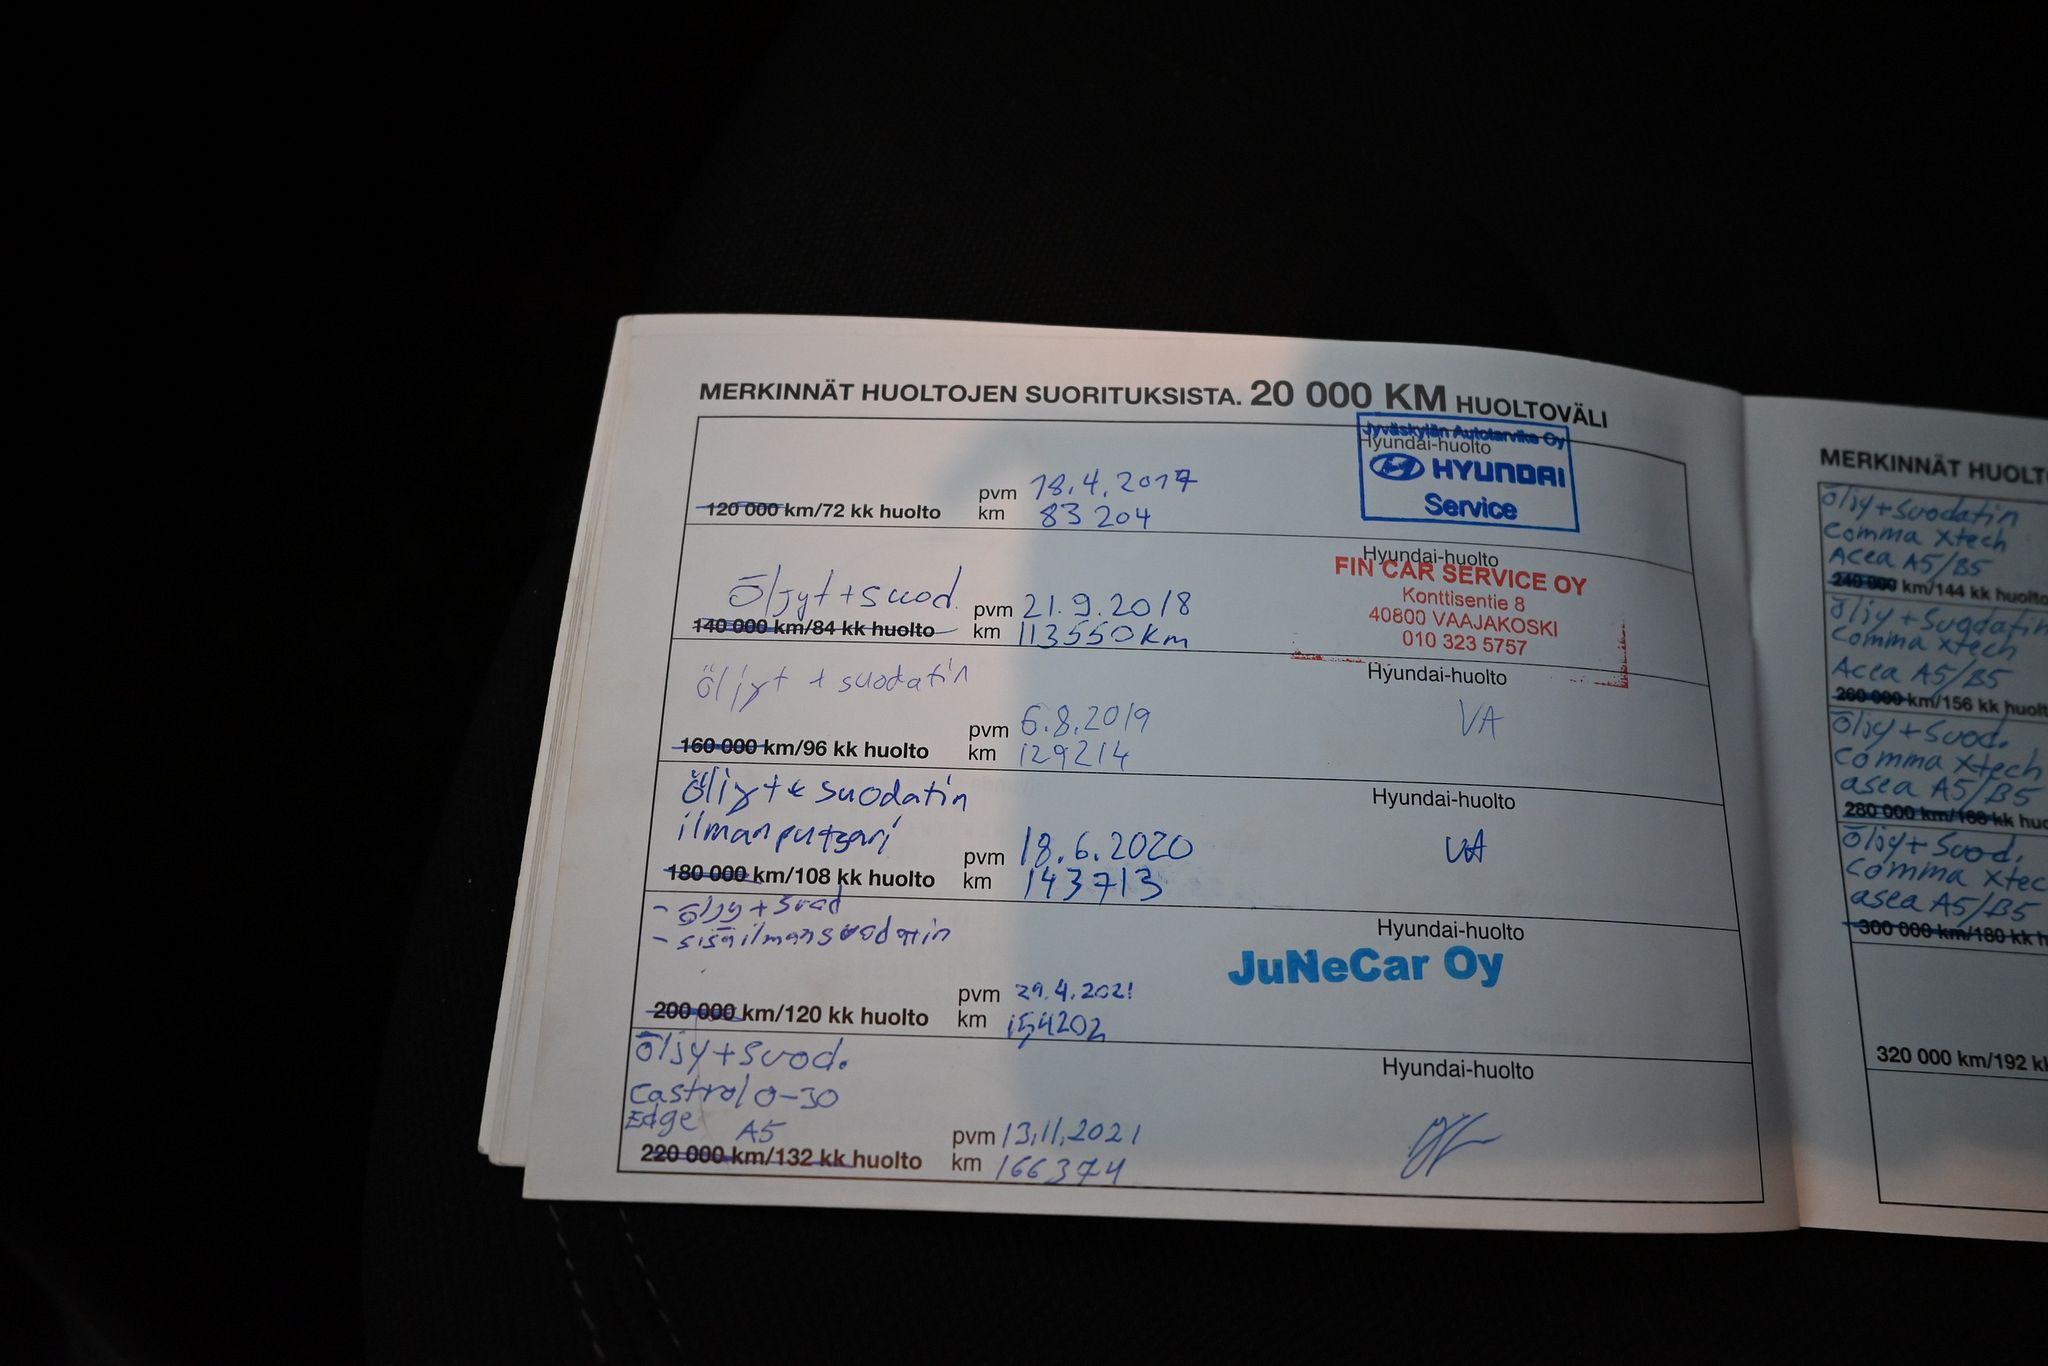 MERKINNÄT HUOLTOJEN SUORITUKSISTA. 20 000 KM HUOLTOVÄLI
Jyväskylän Autotarvike Oy
Hyundai-huolto
HYUNDAI
Service
pvm 18.4.2017
120 000 km/72 kk huolto km 83 204
Hyundai-huolto
FIN CAR SERVICE OY
Konttisentie 8
40800 VAAJAKOSKI
010 323 5757
Öljyt + suod. pvm 21.9.2018
140 000 km/84 kk huolto km 113550km
Hyundai-huolto
öljyt + suodatin
VA
pvm 6.8.2019
160 000 km/96 kk huolto km 129214
Hyundai-huolto
Öljyt + suodatin
ilman putsari
VA
pvm 18.6.2020
180 000 km/108 kk huolto km 143713
Hyundai-huolto
- öljy + suod
- sisäilmansuodatin
JuNeCar Oy
pvm 29.4.2021
200 000 km/120 kk huolto km 154202
Hyundai-huolto
Öljy + suod.
Castrol 0-30
Edge A5
pvm 13.11.2021
220 000 km/132 kk huolto km 166374
MERKINNÄT
Öljy + suodatin
Comma Xtech
Acea A5/B5
240 000 km/144 kk
Öljy + Suodatin
Comma xtech
Acea A5/B5
260 000 km/156 kk
Öljy + suod.
Comma Xtech
asea A5/B5
280 000 km/168 kk
Öljy + Suod.
Comma
asea A5/B5
300 000 km/180 kk
320 000 km/192